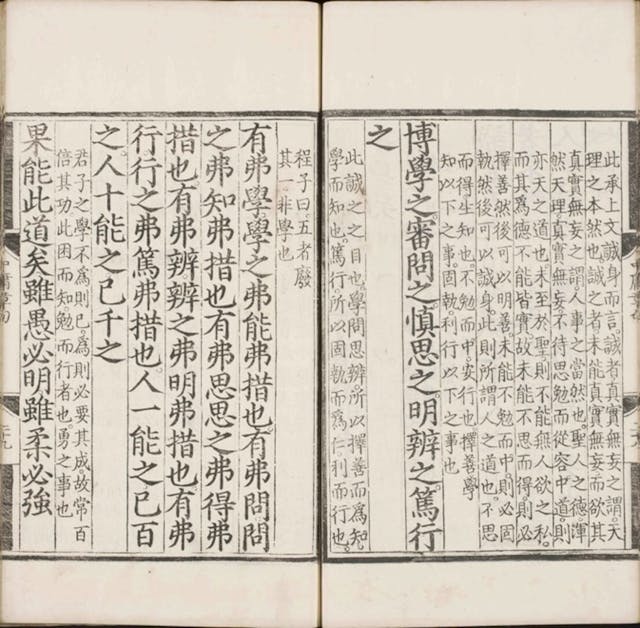 此承上文誠身而言。誠者真實無妄之謂。天
理之本然也。誠之者未能真實無妄而欲其
真實無妄之謂。人事之當然也。聖人之德渾
然天理真實無妄。不待思勉而從容中道。則
亦天之道也。未至於聖則不能無人欲之私。
而其爲德不能皆實。故未能不思而得。則必
擇善然後可以明善。未能不勉而中。則必固
執然後可以誠身。此則所謂人之道也。不思
而得生知也。不勉而中。安行也。擇善學
知以下之事。固執。利行以下之事也
博學之。審問之。慎思之。明辨之。篤行
之
此誠之之目也。學問思辨。所以擇善而爲知。
學而知也。篤行所以固執而爲仁。利而行也。
程子曰。五者廢
其一非學也
有弗學學之弗能弗措也。有弗問問
之弗知弗措也。有弗思思之弗得弗
措也。有弗辨辨之弗明弗措也。有弗
行行之弗篤弗措也。人一能之己百
之人十能之己千之
君子之學不爲則已。爲則必要其成。故常百
倍其功。此困而知勉而行者也。勇之事也
果能此道矣雖愚必明雖柔必強